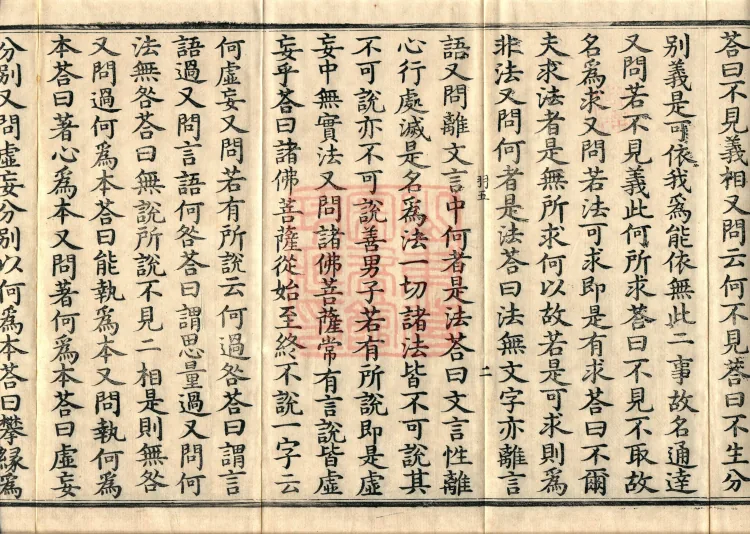 答曰不見義相又問云何不見答曰不生分
別義是可依我為能依無此二事故名通達
又問若不見義此何所求答曰不見不取故
名為求又問若法可求即是有求答曰不爾
夫求法者是無所求何以故若是可求則為
非法又問何者是法答曰法無文字亦離言
羽五
二
語又問離文言中何者是法答曰文言性離
心行處滅是名為法一切諸法皆不可說其
不可說亦不可說善男子若有所說即是虛
妄中無實法又問諸佛菩薩常有言說皆虛
妄乎答曰諸佛菩薩從始至終不說一字云
何虛妄又問若有所說云何過咎答曰謂言
語過又問言語何咎答曰謂思量過又問何
法無咎答曰無說所說不見二相是則無咎
又問過何為本答曰能執為本又問執何為
本答曰著心為本又問著何為本答曰虛妄
分別又問虛妄分別以何為本答曰攀緣為